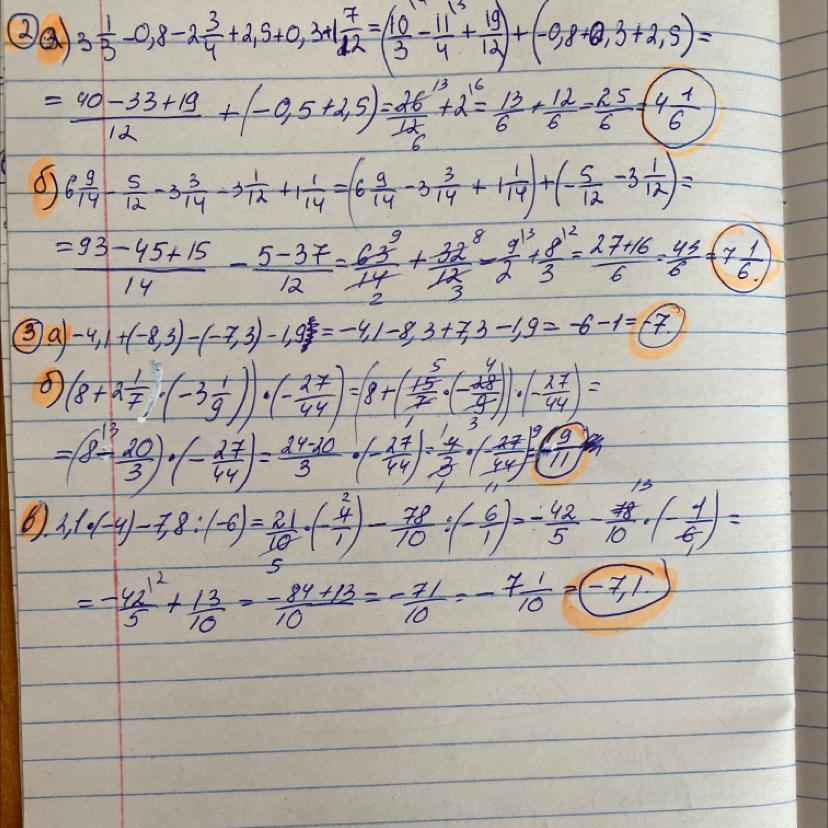 ② а) 3 1/3 - 0,8 - 2 3/4 + 2,5 + 0,3 + 1 7/12 = (10/3 - 11/4 + 19/12) + (-0,8 + 0,3 + 2,5) =
= (40 - 33 + 19)/12 + (-0,5 + 2,5) = 26/12 + 2 = 13/6 + 12/6 = 25/6 = 4 1/6
б) 6 9/14 - 5/12 - 3 3/14 - 3 1/12 + 1 1/14 = (6 9/14 - 3 3/14 + 1 1/14) + (-5/12 - 3 1/12) =
= (93 - 45 + 15)/14 - (5 - 37)/12 = 63/14 + 32/12 = 9/2 + 8/3 = (27 + 16)/6 = 43/6 = 7 1/6.
③ а) -4,1 + (-8,3) - (-7,3) - 1,9 = -4,1 - 8,3 + 7,3 - 1,9 = -6 - 1 = -7.
б) (8 + 2 1/7 · (-3 1/9)) · (-27/44) = (8 + (15/7 · (-28/9))) · (-27/44) =
= (8 - 20/3) · (-27/44) = (24 - 20)/3 · (-27/44) = 4/3 · (-27/44) = -9/11
в) 2,1 · (-4) - 7,8 : (-6) = 21/10 · (-4/1) - 78/10 : (-6/1) = -42/5 - 78/10 · (-1/6) =
= -42/5 + 13/10 = (-84 + 13)/10 = -71/10 = -7 1/10 = -7,1.